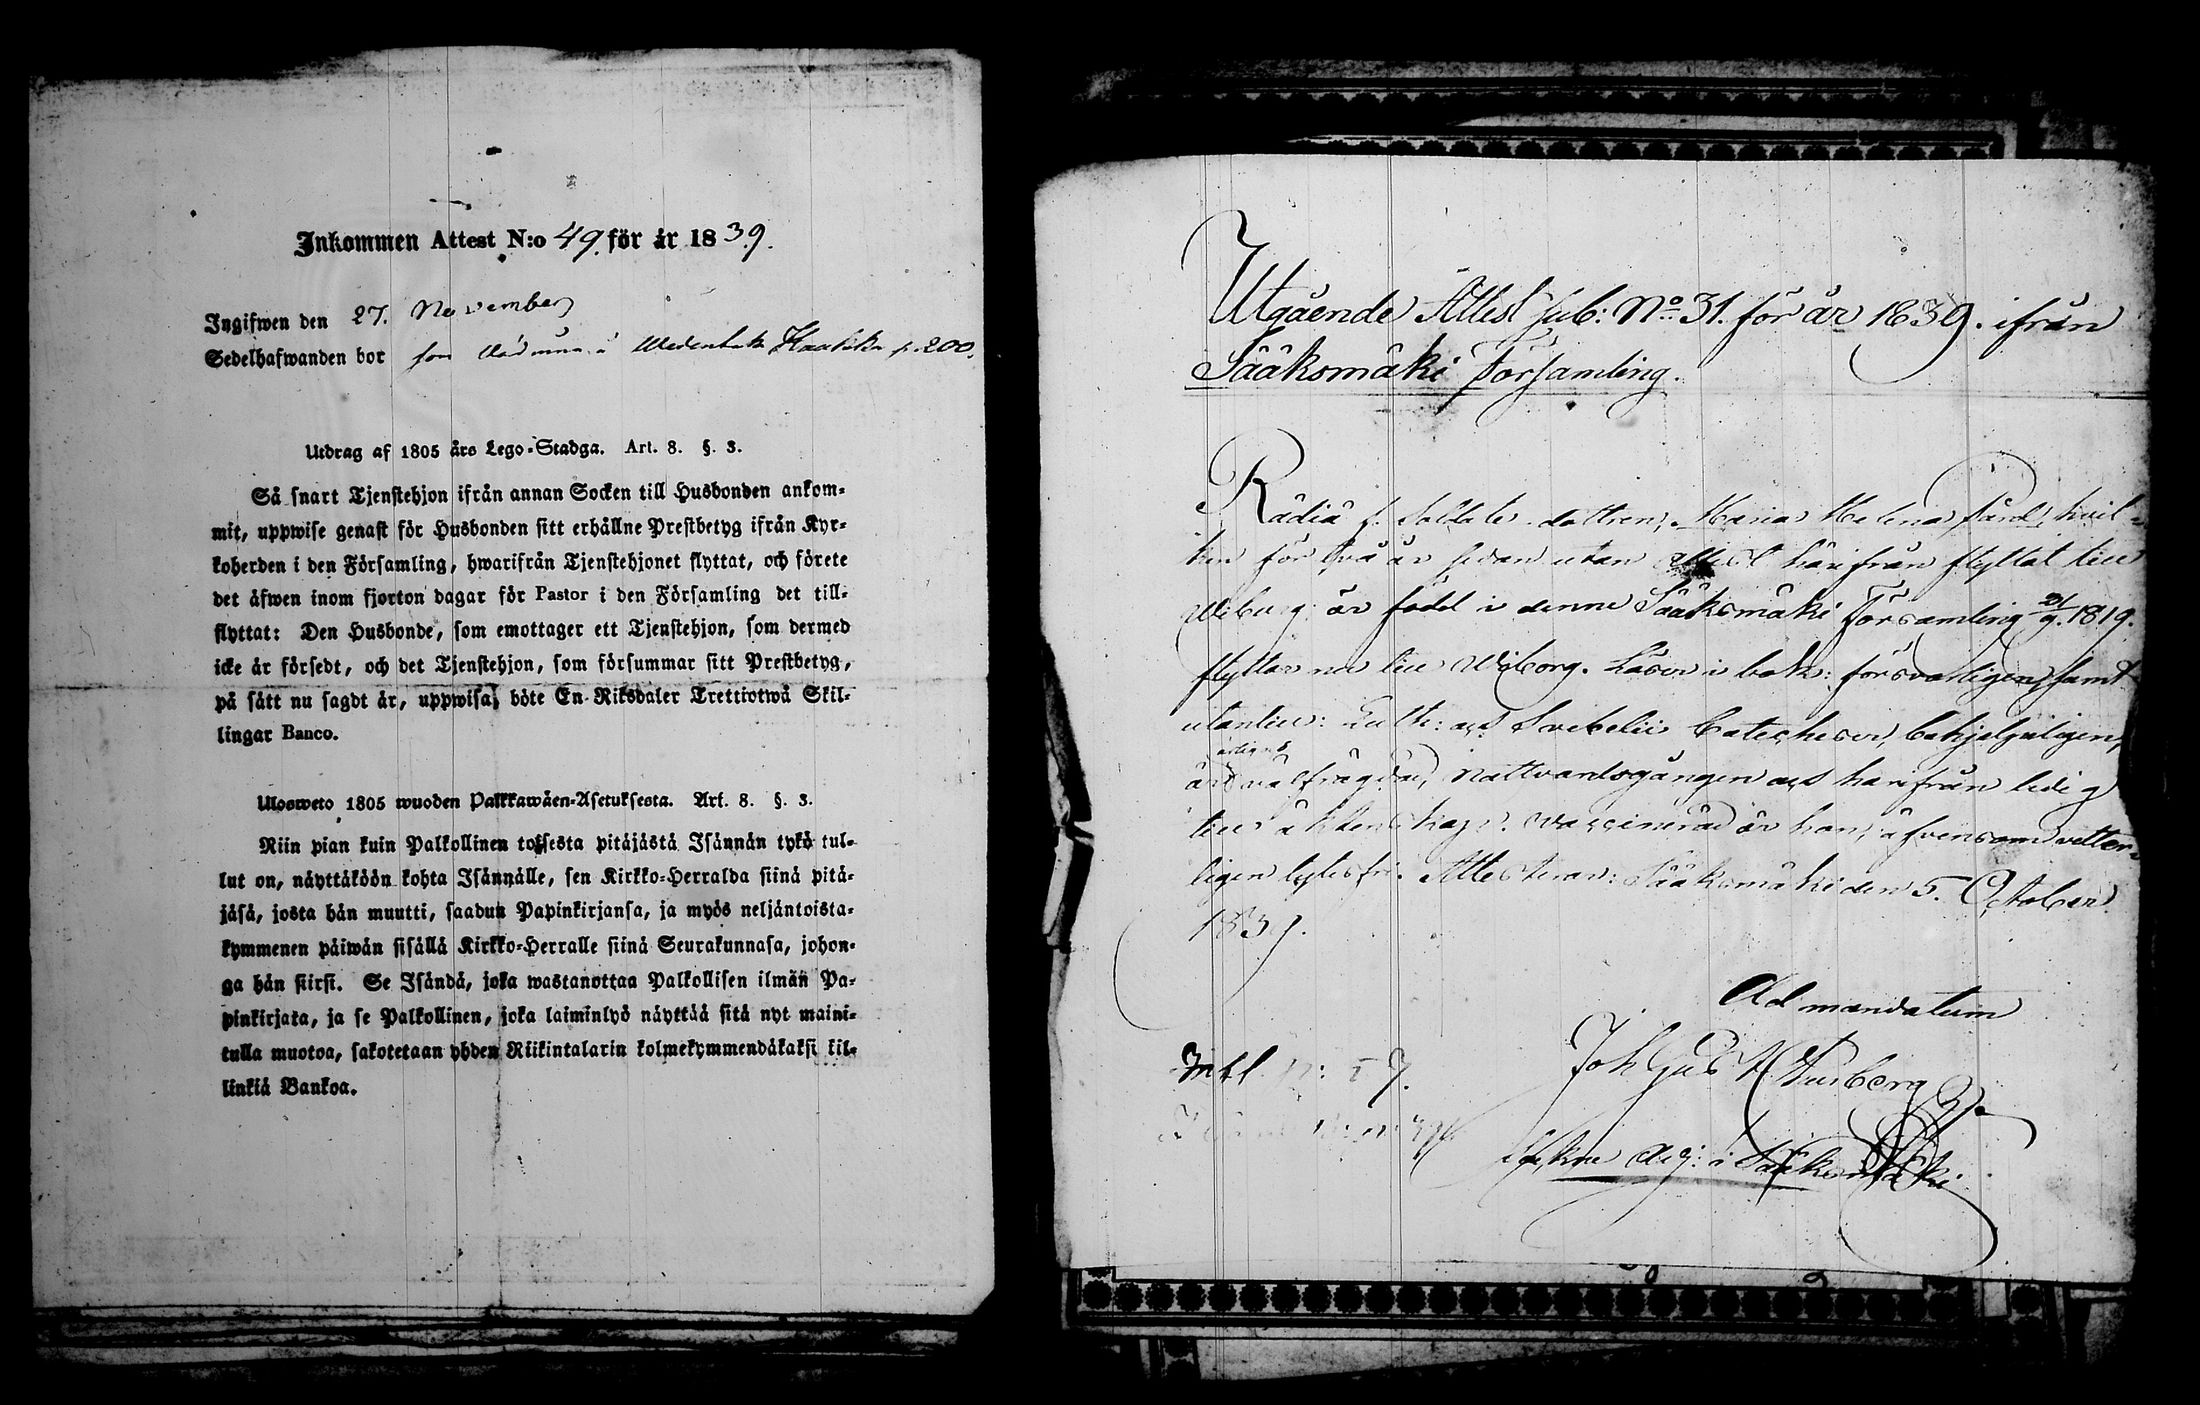 Inkommen Attest N:o 49. för år 1839.
Ingifwen den 27. November
Sedelhafwanden bor p. 200.
Utdrag af 1805 års Lego-Stadga. Art. 8. §. 3.
Så snart Tjenstehjon ifrån annan Socken till Husbonden ankom-
mit, uppwise genast för Husbonden sitt erhållne Prestbetyg ifrån Kyr-
koherden i den Församling, hwarifrån Tjenstehjonet flyttat, och förete
det äfwen inom fjorton dagar för Pastor i den Församling det till-
flyttat: Den Husbonde, som emottager ett Tjenstehjon, som dermed
icke är försedt, och det Tjenstehjon, som försummar sitt Prestbetyg,
på sätt nu sagdt är, uppwisa, böte En Riksdaler Trettiotwå Skil-
lingar Banco.
Ulosweto 1805 wuoden Palkkawäen-Asetuksesta. Art. 8. §. 3.
Niin pian kuin Palkollinen toisesta pitäjästä Isännän tykö tul-
lut on, näyttäköön kohta Isännälle, sen Kirkko-Herralda siinä pitä-
jäsä, josta hän muutti, saadun Papinkirjansa, ja myös neljäntoista-
kymmenen päiwän sisällä Kirkko-Herralle siinä Seurakunnasa, johon-
ga hän siirsi. Se Isändä, joka wastanottaa Palkollisen ilman Pa-
pinkirjata, ja se Palkollinen, joka laiminlyö näyttää sitä nyt maini-
tulla muotoa, sakotetaan yhden Riikintalarin kolmekymmendäkaksi kil-
linkiä Bankoa.
Utgående Attest sub: No 31. för år 1839. ifrån
Sääksmäki Församling.
f. Soldats dottren, Maria Helena hvil-
ken för två år sedan utan attest härifrån flyttat till
Wiburg är född i denne Sääksmäki Församling 1819.
flyttar nu till Wiborg. Läser i bok: försvarligen, samt
utantill: Luth: och Svebelii Catecheser,
nattvardsgången och härifrån ledig
till äktenskap. vaccinerad är hon, äfvensom vetter-
ligen lytesfri. Attesterar: Sääksmäki den 5. October
1839.
Ad mandatum
Joh Gust
Adj: i Sääksmäki